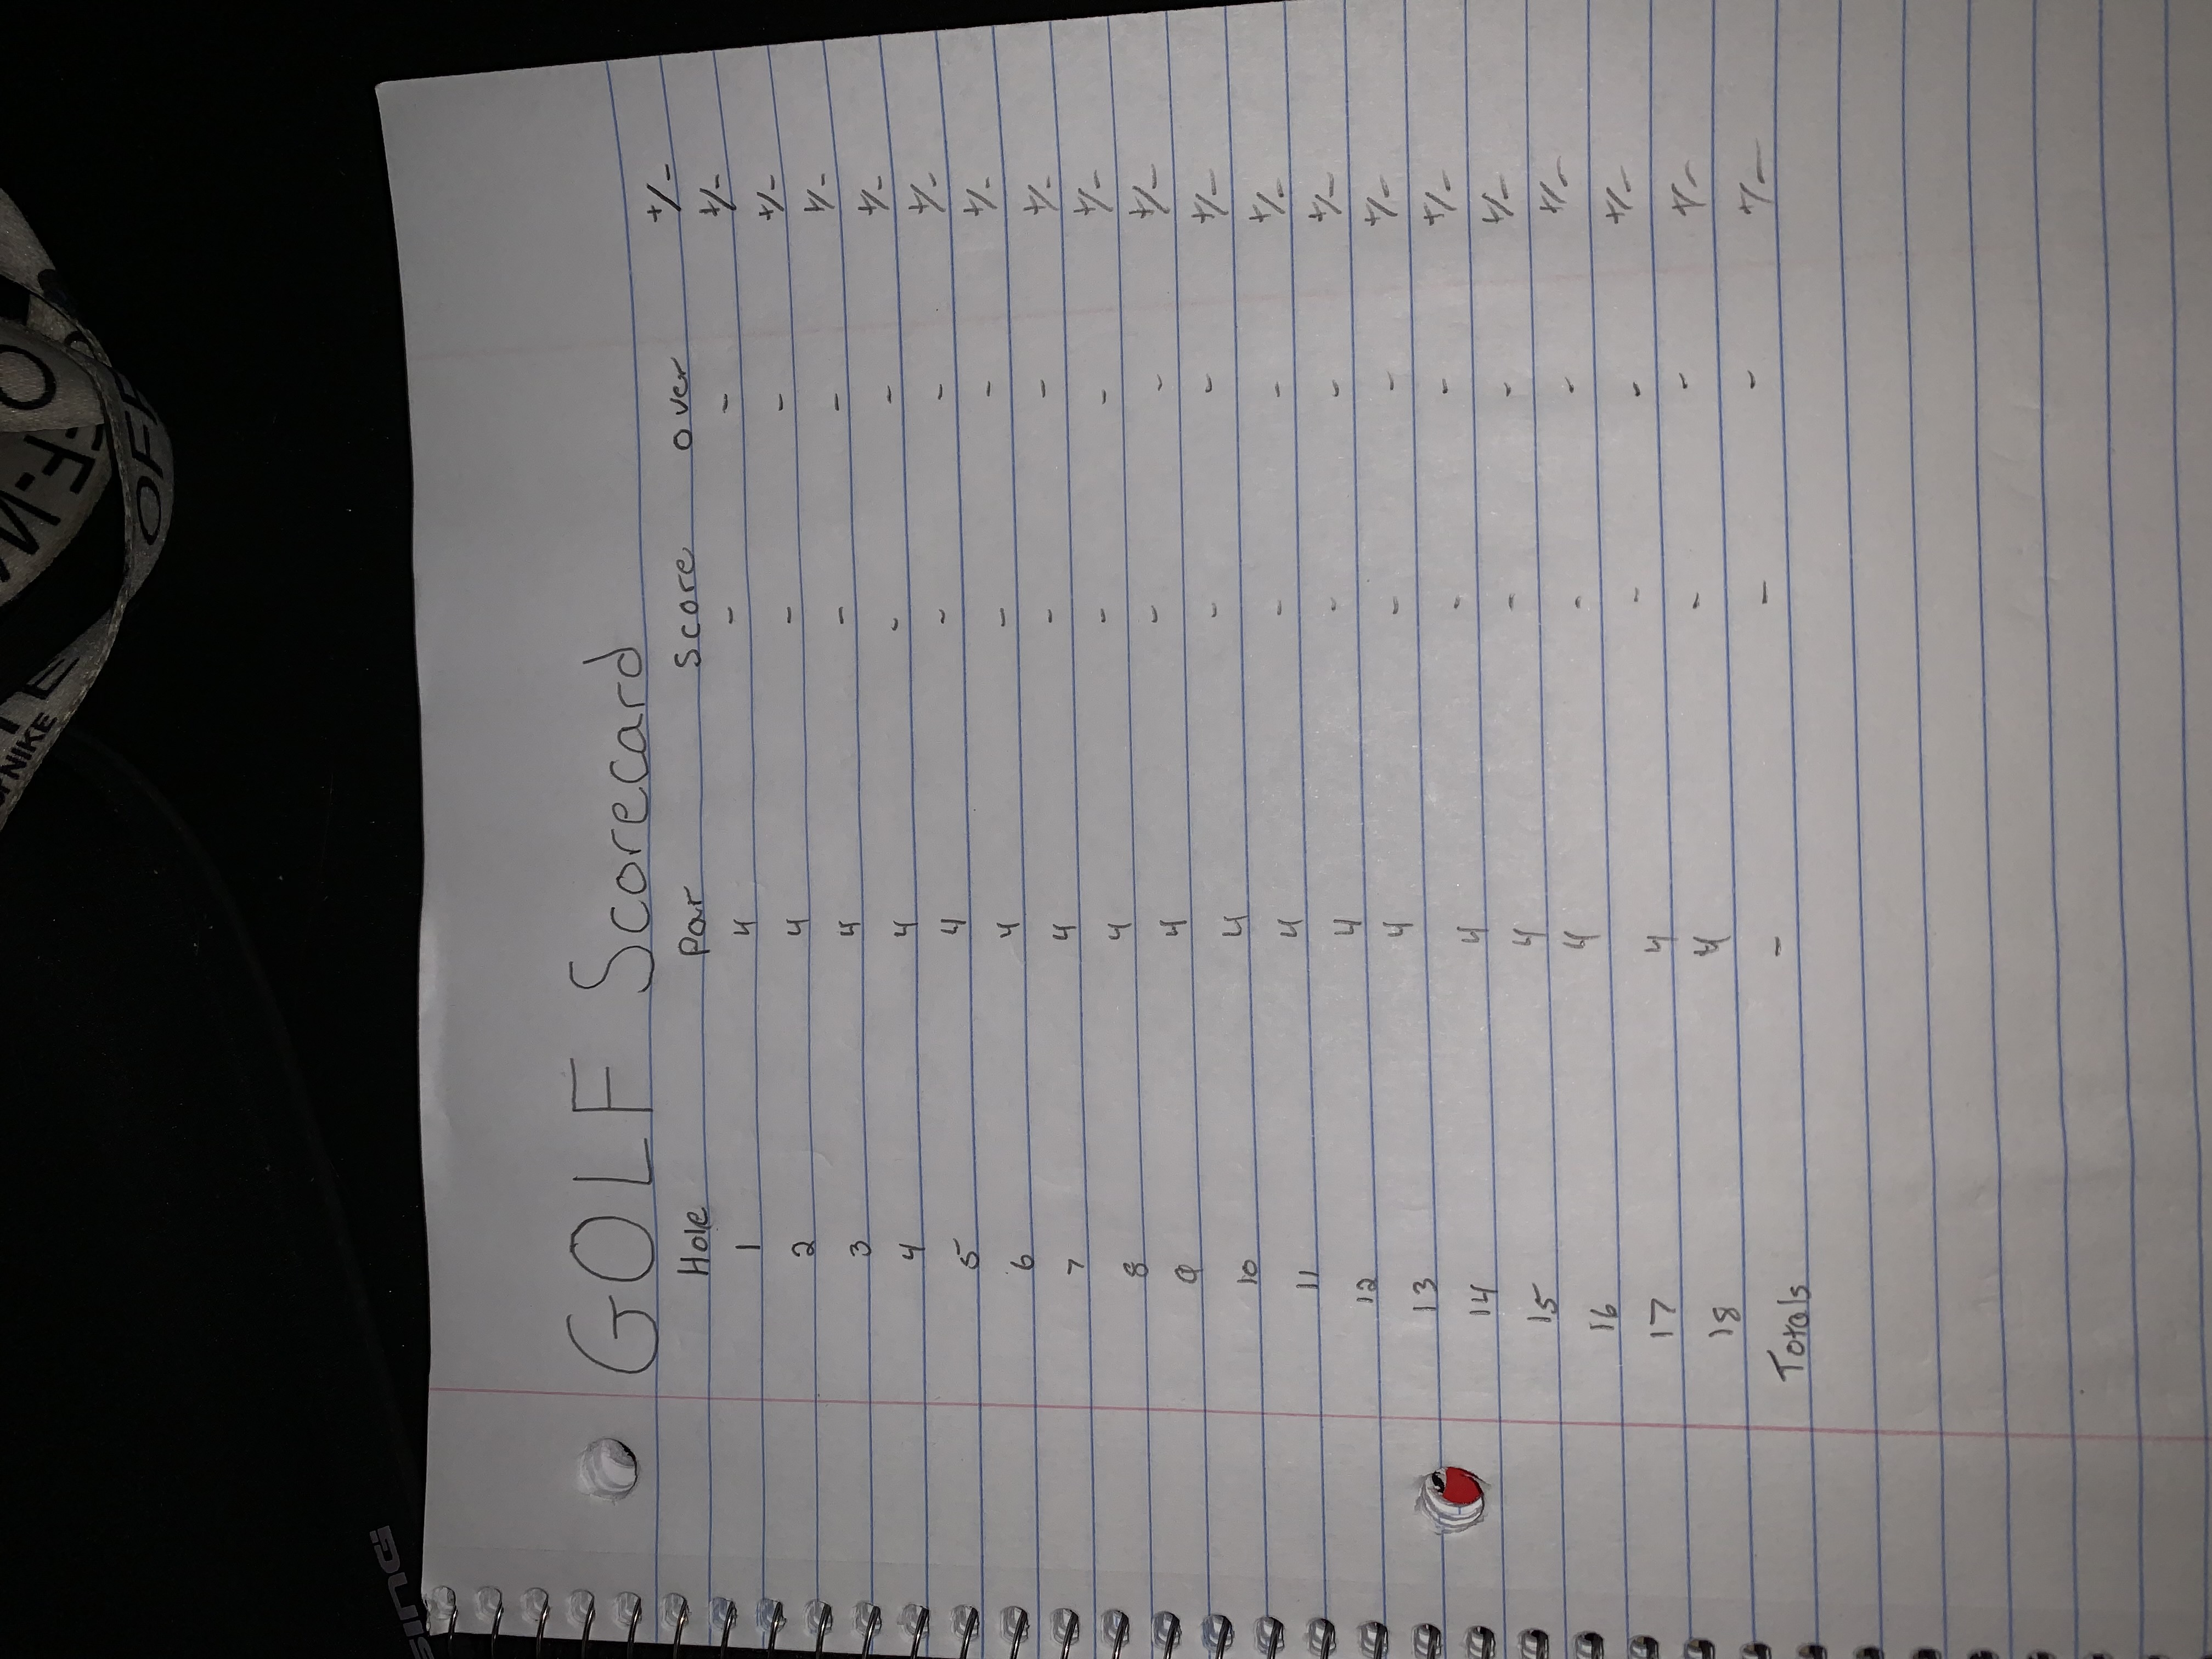 NIKE
OFF
SING
GOLF Scorecard
Hole Par Score over +/-
1 4 - - +/-
2 4 - - +/-
3 4 - - +/-
4 4 - - +/-
5 4 - - +/-
6 4 - - +/-
7 4 - - +/-
8 4 - - +/-
9 4 - - +/-
10 4 - - +/-
11 4 - - +/-
12 4 - - +/-
13 4 - - +/-
14 4 - - +/-
15 4 - - +/-
16 4 - - +/-
17 4 - - +/-
18 4 - - +/-
Totals - - - +/-